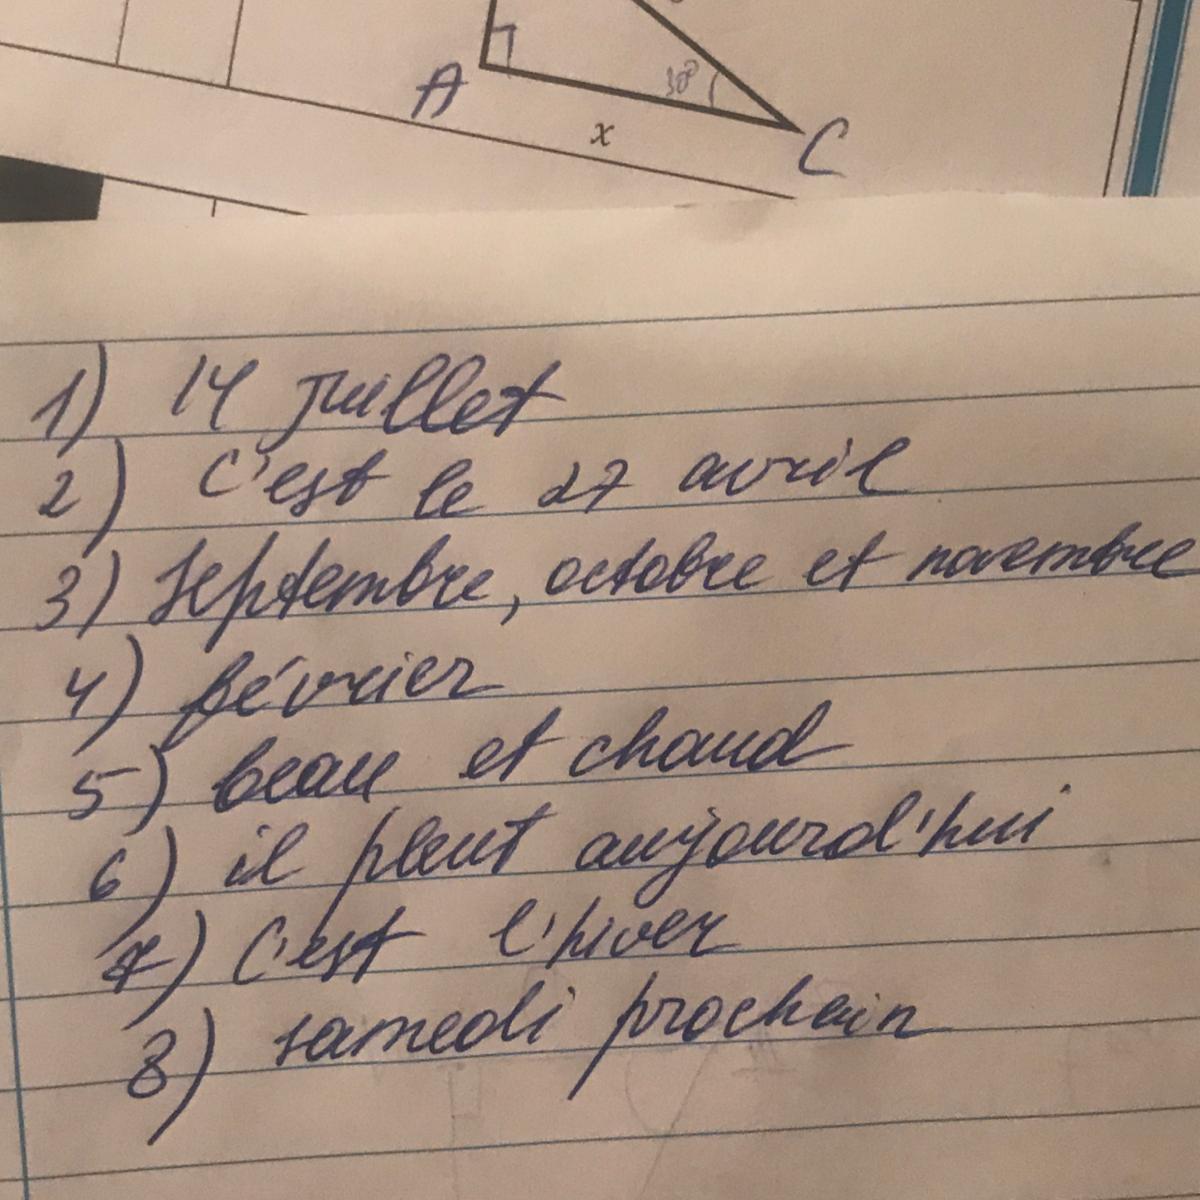 A
30°
x
C
1) 14 juillet
2) C'est le 27 avril
3) Septembre, octobre et novembre
4) février
5) beau et chaud
6) il pleut aujourd'hui
7) C'est l'hiver
8) samedi prochain